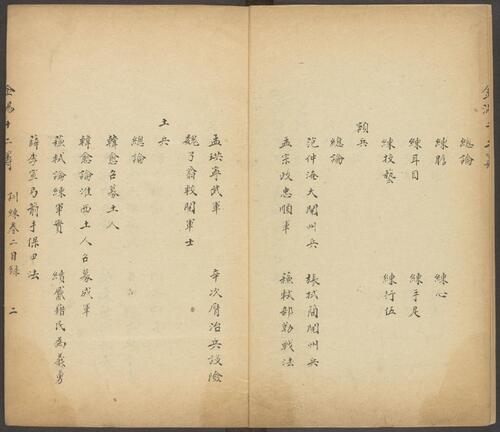 總論
練膽 練心
練耳目 練手足
練技藝 練行伍
總論
范仲淹大閱州兵 張栻蘭閱州兵
孟宗政忠順軍 蘇軾部勒戰法
孟珙寧武軍 辛次膺治兵設險
魏了翁教閱軍士
土兵
總論
韓愈召募土人
韓愈論淮西土人召募成軍
蘇軾論練軍實 續籍民為義勇
薛季宣弓箭手保甲法
訓練卷二目錄 二